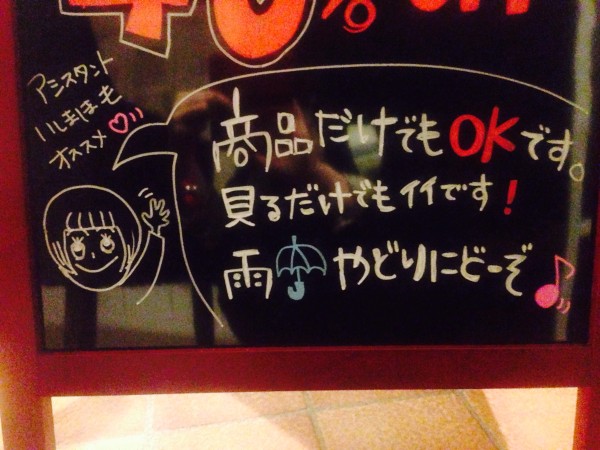 40% OFF
アシスタント
いしまほも
オススメ
商品だけでもOKです。
見るだけでもイイです!
雨やどりにどーぞ